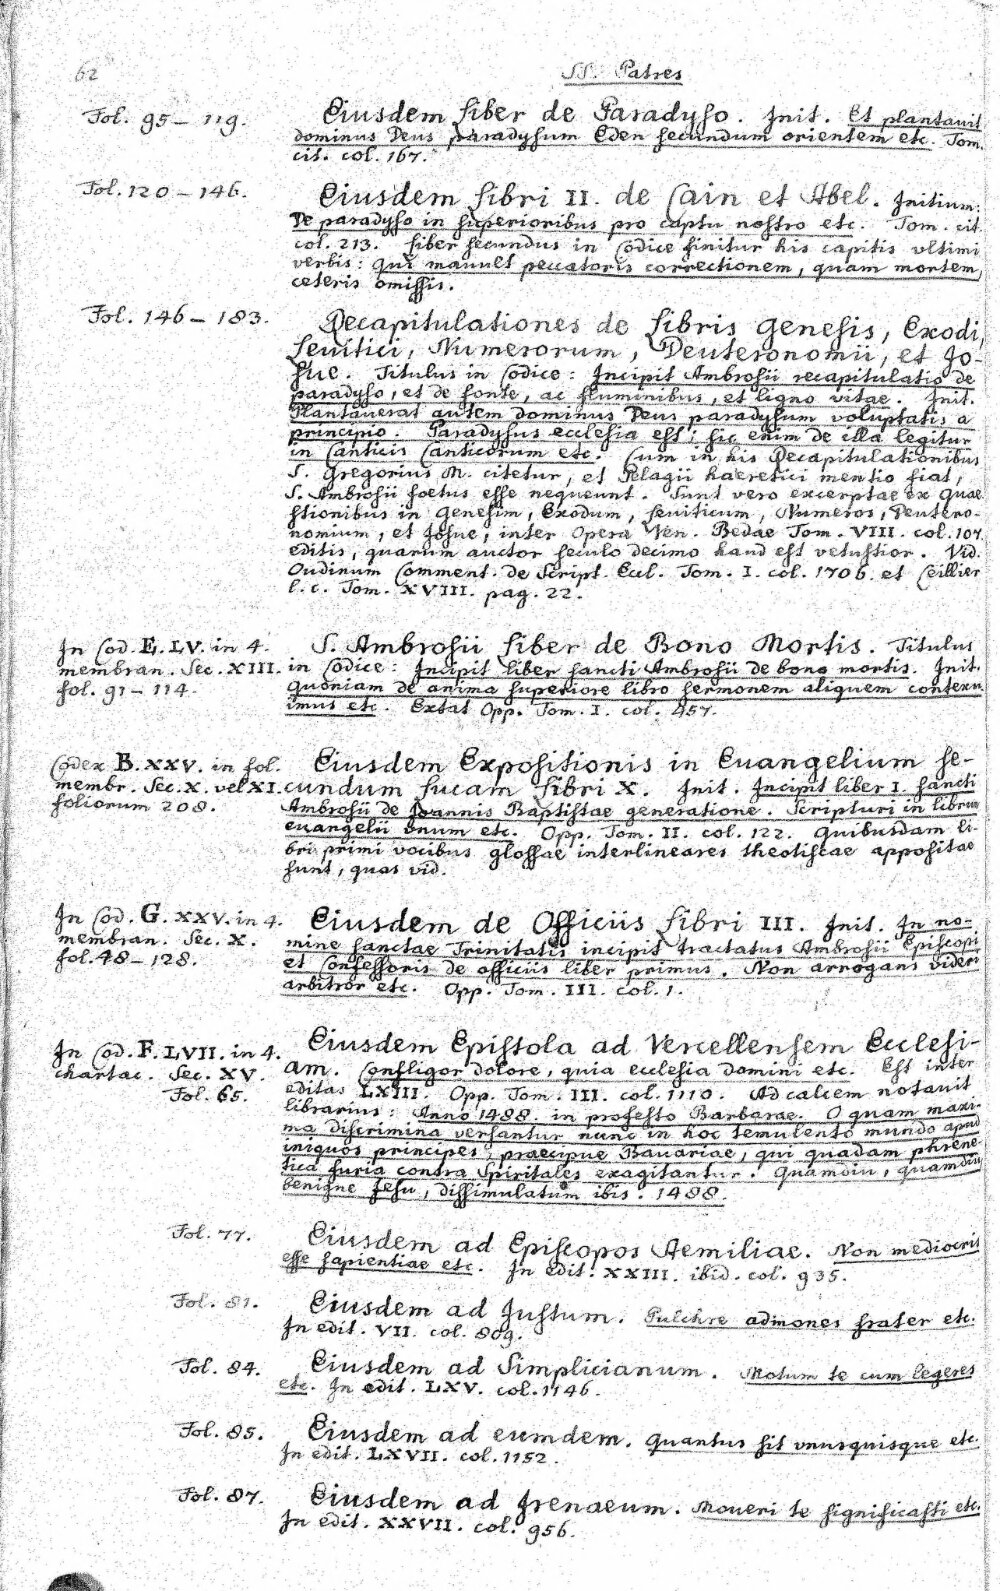 62
SS. Patres
Fol. 95 – 119.
Eiusdem Liber de Paradyso. Init. Et plantavit
dominus Deus paradysum Eden secundum orientem etc. Tom.
cit. col. 167.
Fol. 120 – 146.
Eiusdem Libri II. de Cain et Abel. Initium:
De paradyso in superioribus pro captu nostro etc. Tom. cit.
col. 213. Liber secundus in Codice finitur his capitis vltimi
verbis: Qui mavult peccatoris correctionem, quam mortem,
ceteris omissis.
Fol. 146 – 183.
Recapitulationes de Libris Genesis, Exodi,
Leuitici, Numerorum, Deuteronomii, et Jo-
sue. Titulus in Codice: Incipit Ambrosii recapitulatio de
paradyso, et de fonte, ac fluminibus, et ligno vitae. Init.
Plantauerat autem dominus Deus paradysum voluptatis a
principio. Paradysus ecclesia est; sic enim de illa legitur
in Canticis Canticorum etc. Cum in his Recapitulationibus
S. Gregorius M. citetur, et Pelagii haeretici mentio fiat,
S. Ambrosii foetus esse nequeunt. Sunt vero excerptae ex Quae
stionibus in Genesim, Exodum, Leuiticum, Numeros, Deutero-
nomium, et Josue, inter Opera Ven. Bedae Tom. VIII. col. 107.
editis, quarum auctor seculo decimo haud est vetustior. Vid.
Oudinum Comment. de Script. Eccl. Tom. I. col. 1706. et Ceillier
l. c. Tom. XVIII. pag. 22.
In Cod. E. LV. in 4.
membran. Sec. XIII.
fol. 91 – 114.
S. Ambrosii Liber de Bono Mortis. Titulus
in Codice: Incipit liber sancti Ambrosii de bono mortis. Init.
Quoniam de anima superiore libro sermonem aliquem contexu
imus etc. Extat Opp. Tom. I. col. 457.
Codex B. XXV. in fol.
membr. Sec. X. vel XI.
foliorum 208.
Eiusdem Expositionis in Euangelium se-
cundum Lucam Libri X. Init. Incipit liber I. sancti
Ambrosii de Joannis Baptistae generatione. Scripturi in librum
euangelii unum etc. Opp. Tom. II. col. 122. Quibusdam li-
bri primi vocibus glossae interlineares theotiscae appositae
sunt, quas vid.
In Cod. G. XXV. in 4.
membran. Sec. X.
fol. 48 – 128.
Eiusdem de Officiis Libri III. Init. In no-
mine sanctae Trinitatis incipit tractatus Ambrosii Episcopi
et Confessoris de officiis liber primus. Non arrogans videri
arbitror etc. Opp. Tom. III. col. 1.
In Cod. F. LVII. in 4.
chartac. Sec. XV.
Fol. 65.
Eiusdem Epistola ad Vercellensem Ecclesi-
am. Confligor dolore, quia ecclesia domini etc. Est inter
editas LXIII. Opp. Tom. III. col. 1110. Ad calcem notauit
librarius: Anno 1488. in profesto Barbarae. O quam maxi-
ma discrimina versantur nunc in hoc temulento mundo apud
iniquos principes, praecipue Bauariae, qui quadam phrene-
tica furia contra Spiritales exagitantur. Quamdiu, quamdiu
benigne Jesu, dissimulatum ibis. 1488.
Fol. 77.
Eiusdem ad Episcopos Aemiliae. Non mediocris
esse sapientiae etc. In edit. XXIII. ibid. col. 935.
Fol. 81.
Eiusdem ad Justum. Pulchre admones frater etc.
In edit. VII. col. 809.
Fol. 84.
Eiusdem ad Simplicianum. Motum te cum legeres
etc. In edit. LXV. col. 1146.
Fol. 85.
Eiusdem ad eumdem. Quantus sit vnusquisque etc.
In edit. LXVII. col. 1152.
Fol. 87.
Eiusdem ad Irenaeum. Moueri te significasti etc.
In edit. XXVII. col. 956.